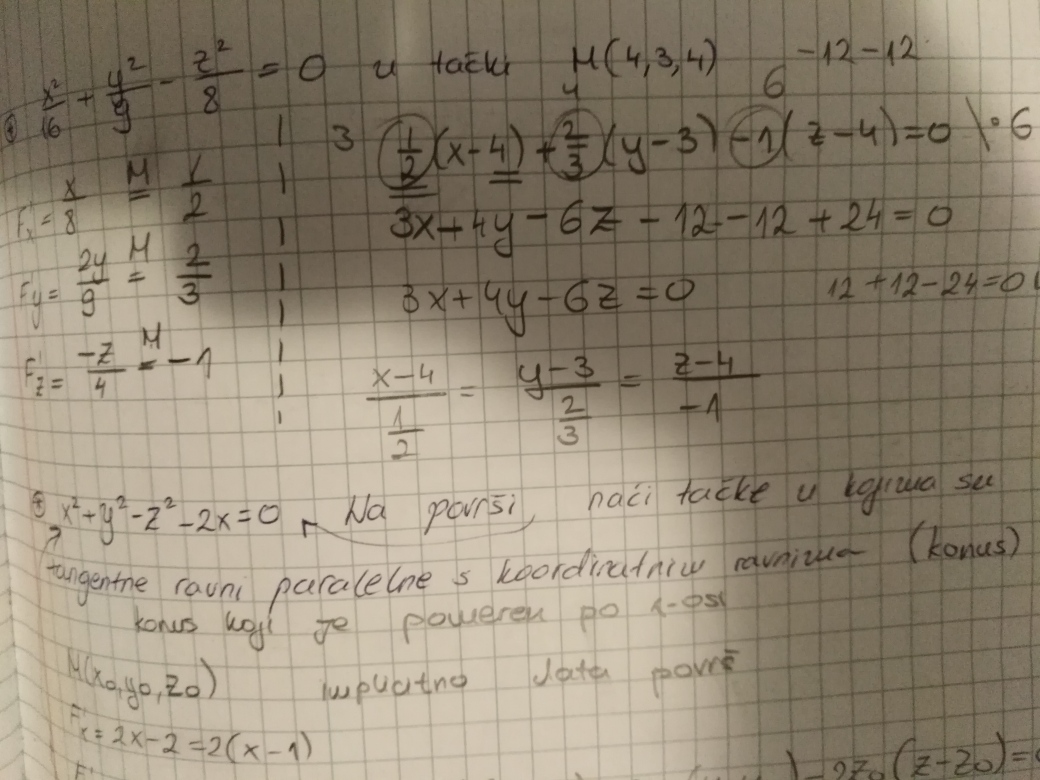 x²/16 + y²/9 - z²/8 = 0 u tački M(4,3,4)
-12-12
3 4 6
1/2(x-4)+2/3(y-3)-1(z-4)=0 \·6
F'x = x/8 M= 1/2
3x+4y-6z-12-12+24=0
F'y = 2y/9 M= 2/3
3x+4y-6z=0 12+12-24=0
F'z = -z/4 M= -1
(x-4)/(1/2) = (y-3)/(2/3) = (z-4)/-1
x²+y²-z²-2x=0 Na površi naći tačke u kojima su
tangentne ravni paralelne s koordinatnim ravnima (konus)
konus koji je pomeren po x-osi
M(x0,y0,z0) implicitno data površ
F'x = 2x-2=2(x-1)
(z-z0)=